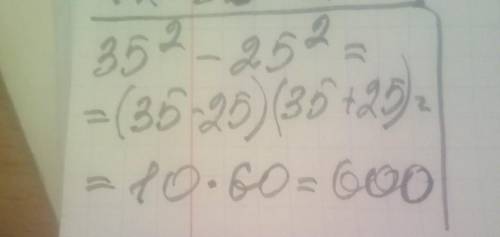 35² - 25² =
= (35 - 25) (35 + 25) =
= 10 · 60 = 600